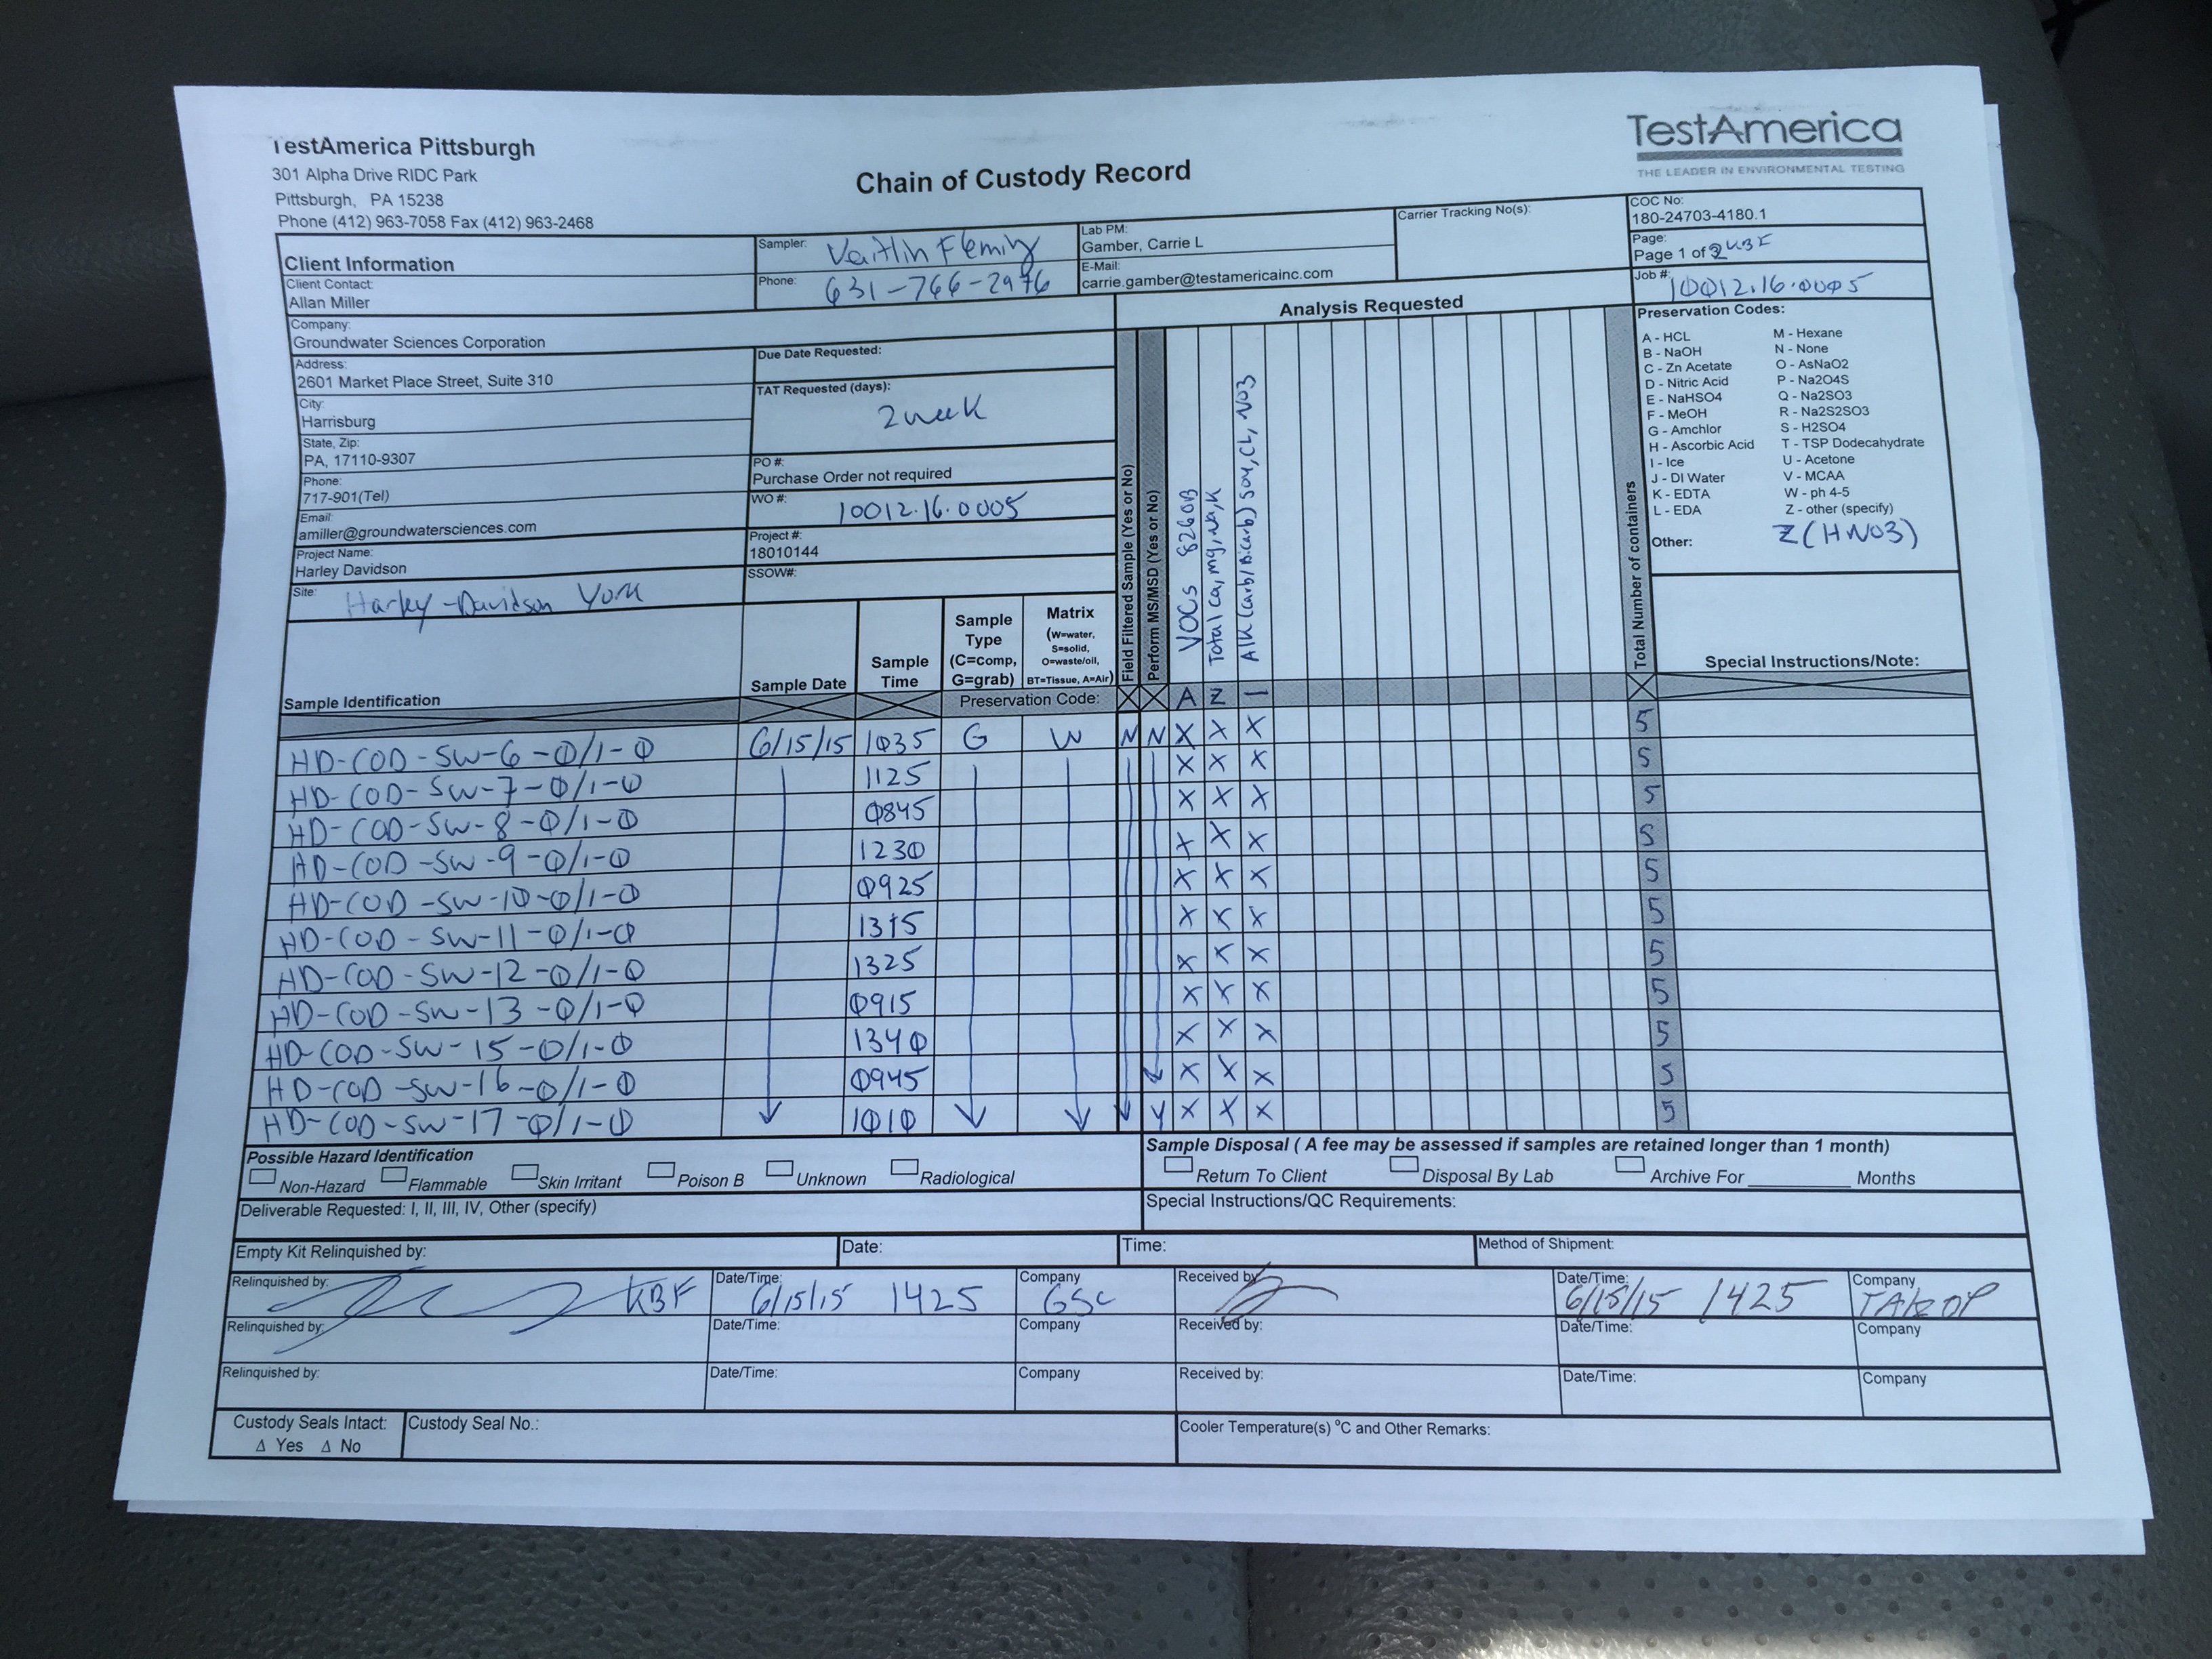 TestAmerica Pittsburgh
301 Alpha Drive RIDC Park
Pittsburgh, PA 15238
Phone (412) 963-7058 Fax (412) 963-2468
Chain of Custody Record
TestAmerica
THE LEADER IN ENVIRONMENTAL TESTING
Client Information
Sampler: Kaitlin Fleming
Phone: 631-766-2976
Lab PM:
Gamber, Carrie L
E-Mail:
carrie.gamber@testamericainc.com
Carrier Tracking No(s):
COC No:
180-24703-4180.1
Page:
Page 1 of 2 KBF
Job #: 10012.16.0005
Client Contact:
Allan Miller
Company:
Groundwater Sciences Corporation
Address:
2601 Market Place Street, Suite 310
City:
Harrisburg
State, Zip:
PA, 17110-9307
Phone:
717-901(Tel)
Email:
amiller@groundwatersciences.com
Project Name:
Harley Davidson
Site: Harley-Davidson York
Due Date Requested:
TAT Requested (days):
2 week
PO #:
Purchase Order not required
WO #:
10012.16.0005
Project #:
18010144
SSOW#:
Analysis Requested
Field Filtered Sample (Yes or No)
Perform MS/MSD (Yes or No)
VOCs 8260B
Total Ca, Mg, Na, K
Alk (Carb/Bicarb) SO4, CL, NO3
Total Number of containers
Preservation Codes:
A - HCL M - Hexane
B - NaOH N - None
C - Zn Acetate O - AsNaO2
D - Nitric Acid P - Na2O4S
E - NaHSO4 Q - Na2SO3
F - MeOH R - Na2S2SO3
G - Amchlor S - H2SO4
H - Ascorbic Acid T - TSP Dodecahydrate
I - Ice U - Acetone
J - DI Water V - MCAA
K - EDTA W - ph 4-5
L - EDA Z - other (specify)
Other: Z (HNO3)
Sample Identification
Sample Date
Sample Time
Sample Type (C=comp, G=grab)
Matrix (W=water, S=solid, O=waste/oil, BT=Tissue, A=Air)
Special Instructions/Note:
Preservation Code: A Z —
HD-COD-SW-6-0/1-0 6/15/15 1035 G W N N X X X 5
HD-COD-SW-7-0/1-0 1125 X X X 5
HD-COD-SW-8-0/1-0 0845 X X X 5
HD-COD-SW-9-0/1-0 1230 X X X 5
HD-COD-SW-10-0/1-0 0925 X X X 5
HD-COD-SW-11-0/1-0 1315 X X X 5
HD-COD-SW-12-0/1-0 1325 X X X 5
HD-COD-SW-13-0/1-0 0915 X X X 5
HD-COD-SW-15-0/1-0 1340 X X X 5
HD-COD-SW-16-0/1-0 0945 X X X 5
HD-COD-SW-17-0/1-0 1010 Y X X X 5
Possible Hazard Identification
Non-Hazard Flammable Skin Irritant Poison B Unknown Radiological
Sample Disposal ( A fee may be assessed if samples are retained longer than 1 month)
Return To Client Disposal By Lab Archive For Months
Deliverable Requested: I, II, III, IV, Other (specify)
Special Instructions/QC Requirements:
Empty Kit Relinquished by: Date: Time: Method of Shipment:
Relinquished by: KBF Date/Time: 6/15/15 1425 Company GSC Received by: Date/Time: 6/15/15 1425 Company
Relinquished by: Date/Time: Company Received by: Date/Time: Company
Relinquished by: Date/Time: Company Received by: Date/Time: Company
Custody Seals Intact:
Δ Yes Δ No
Custody Seal No.:
Cooler Temperature(s) °C and Other Remarks: